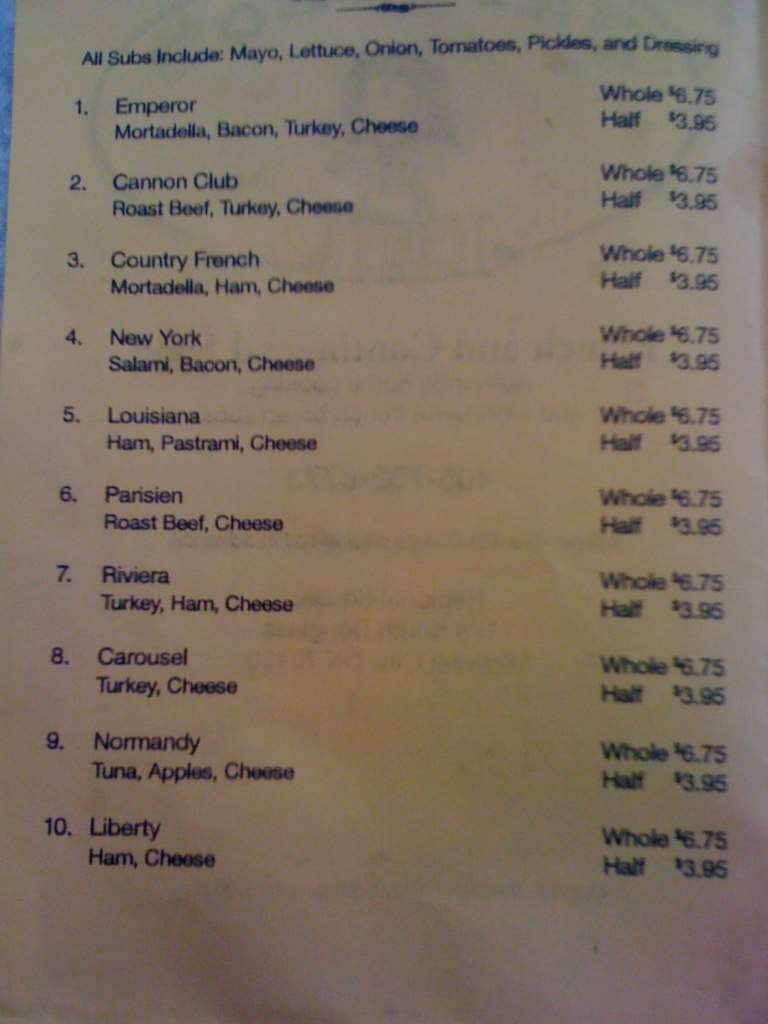 All Subs Include: Mayo, Lettuce, Onion, Tomatoes, Pickles, and Dressing
1. Emperor Whole $6.75
Mortadella, Bacon, Turkey, Cheese Half $3.95
2. Cannon Club Whole $6.75
Roast Beef, Turkey, Cheese Half $3.95
3. Country French Whole $6.75
Mortadella, Ham, Cheese Half $3.95
4. New York Whole $6.75
Salami, Bacon, Cheese Half $3.95
5. Louisiana Whole $6.75
Ham, Pastrami, Cheese Half $3.95
6. Parisien Whole $6.75
Roast Beef, Cheese Half $3.95
7. Riviera Whole $6.75
Turkey, Ham, Cheese Half $3.95
8. Carousel Whole $6.75
Turkey, Cheese Half $3.95
9. Normandy Whole $6.75
Tuna, Apples, Cheese Half $3.95
10. Liberty Whole $6.75
Ham, Cheese Half $3.95